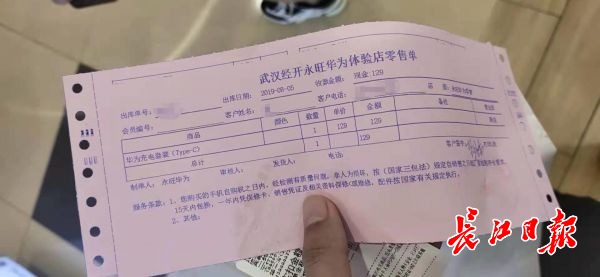 武汉经开永旺华为体验店零售单
出库单号: 出库日期: 2019-08-05 收款金额: 现金:129
会员编号: 客户姓名: 客户电话: 店
商品 颜色 数量 单价 金额 备注
华为充电套装(Type-C) 1 129 129
总计 1 129
制单人: 永旺华为 审核人: 发货人: 电话: 客户签字:
服务条款:1、您购买的手机自购机之日内,经检测有质量问题,非人为损坏,按《国家三包法》规定
15天内包换,一年内凭保修卡、销售凭证及相关资料保修。配件按国家有关规定执行。
2、其他:
长江日报